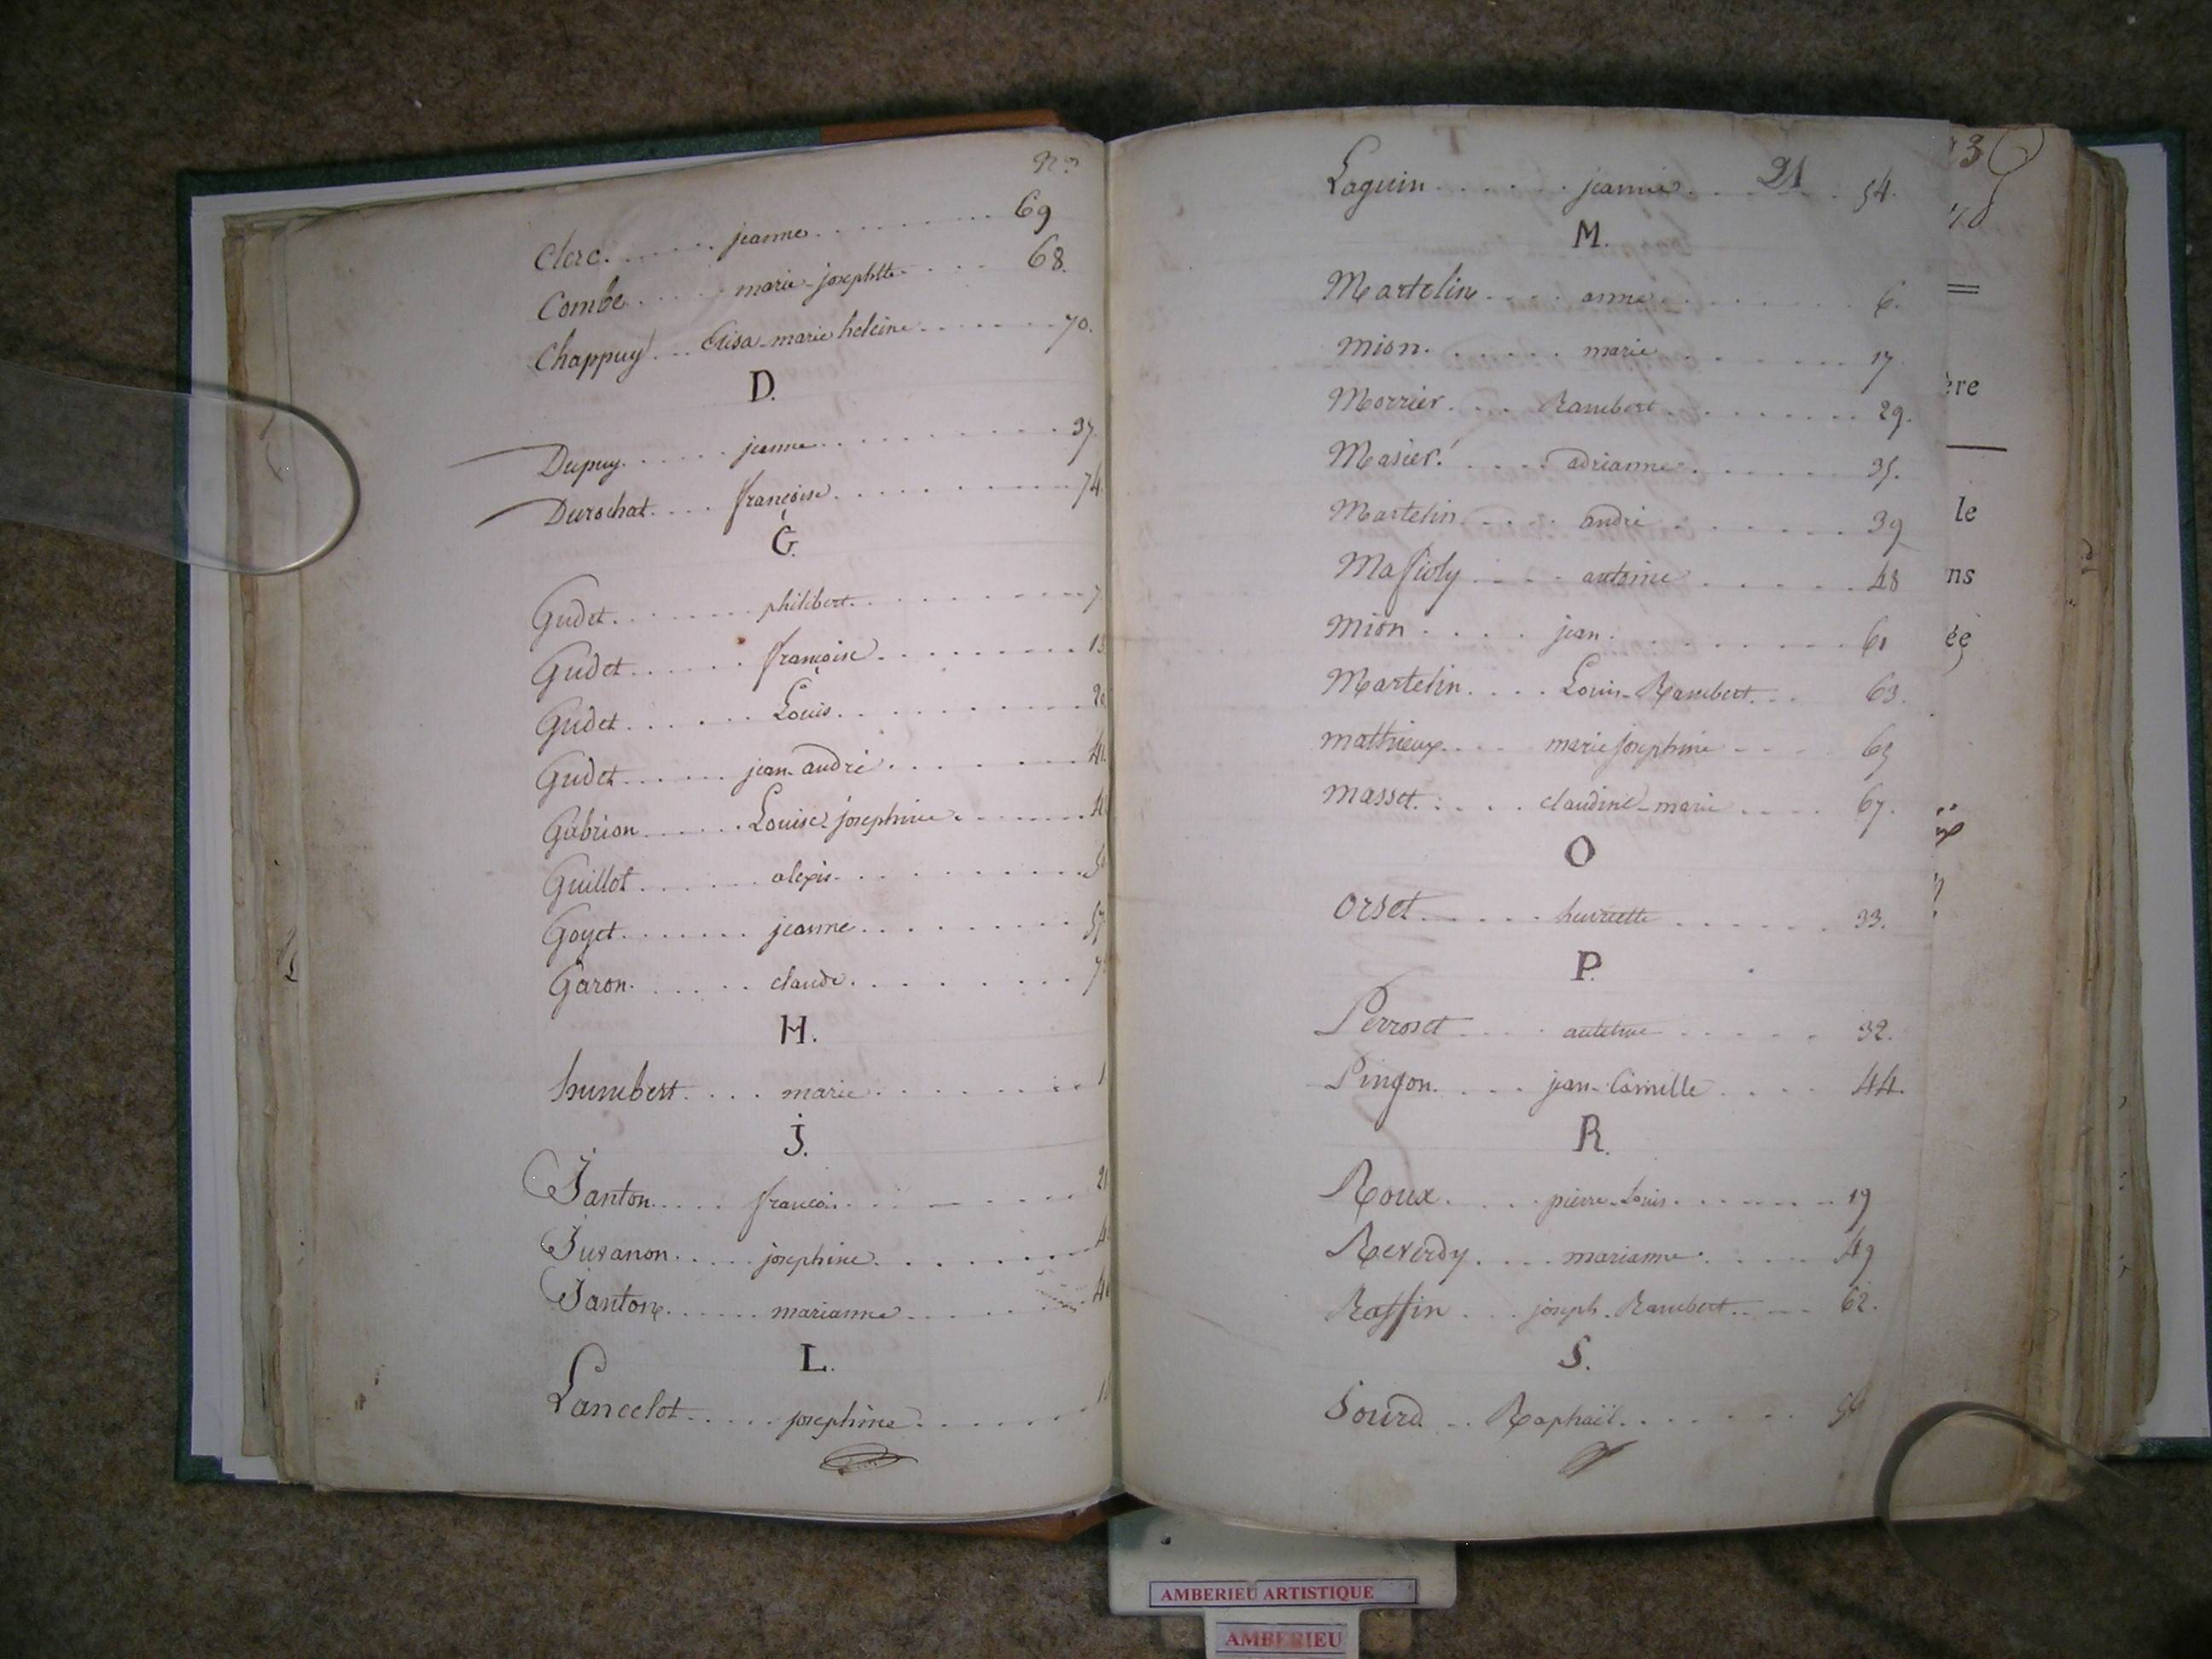 N.os
Clerc jeanne 69
Combe marie-josephtte 68.
Chappuy Elisa-marie heleine 70.
D.
Dupuy jeanne 37.
Durochat françoise 74.
G.
Gudet philibert 7
Gudet françoise
Gudet Louis
Gudet jean-andré
Gabrion Louise josephine
Guillot alexis
Goyet jeanne 57
Garon claude
H.
humbert marie
J.
Janton françois
Juvanon josephine
Janton marianne
L.
Lancelot josephine
Laguin jeanne 54.
21
M.
Martelin anne 6.
Mion marie 17
Morrier Rambert 29.
Masier adrianne 35.
Martelin andré 39
Massioly antoine 48
Mion jean 61
Martelin Louis-Rambert 63.
mathieux marie josephine 65
masset claudine-marie 67.
O
Orset henriette 33.
P.
Perroset antelme 32.
Pingon jean-Camille 44.
R.
Roux pierre-Louis 19
Reverdy marianne 49
Raffin joseph-Rambert 62.
S.
Sourd Raphaël
ère
le
ns
AMBERIEU ARTISTIQUE
AMBERIEU